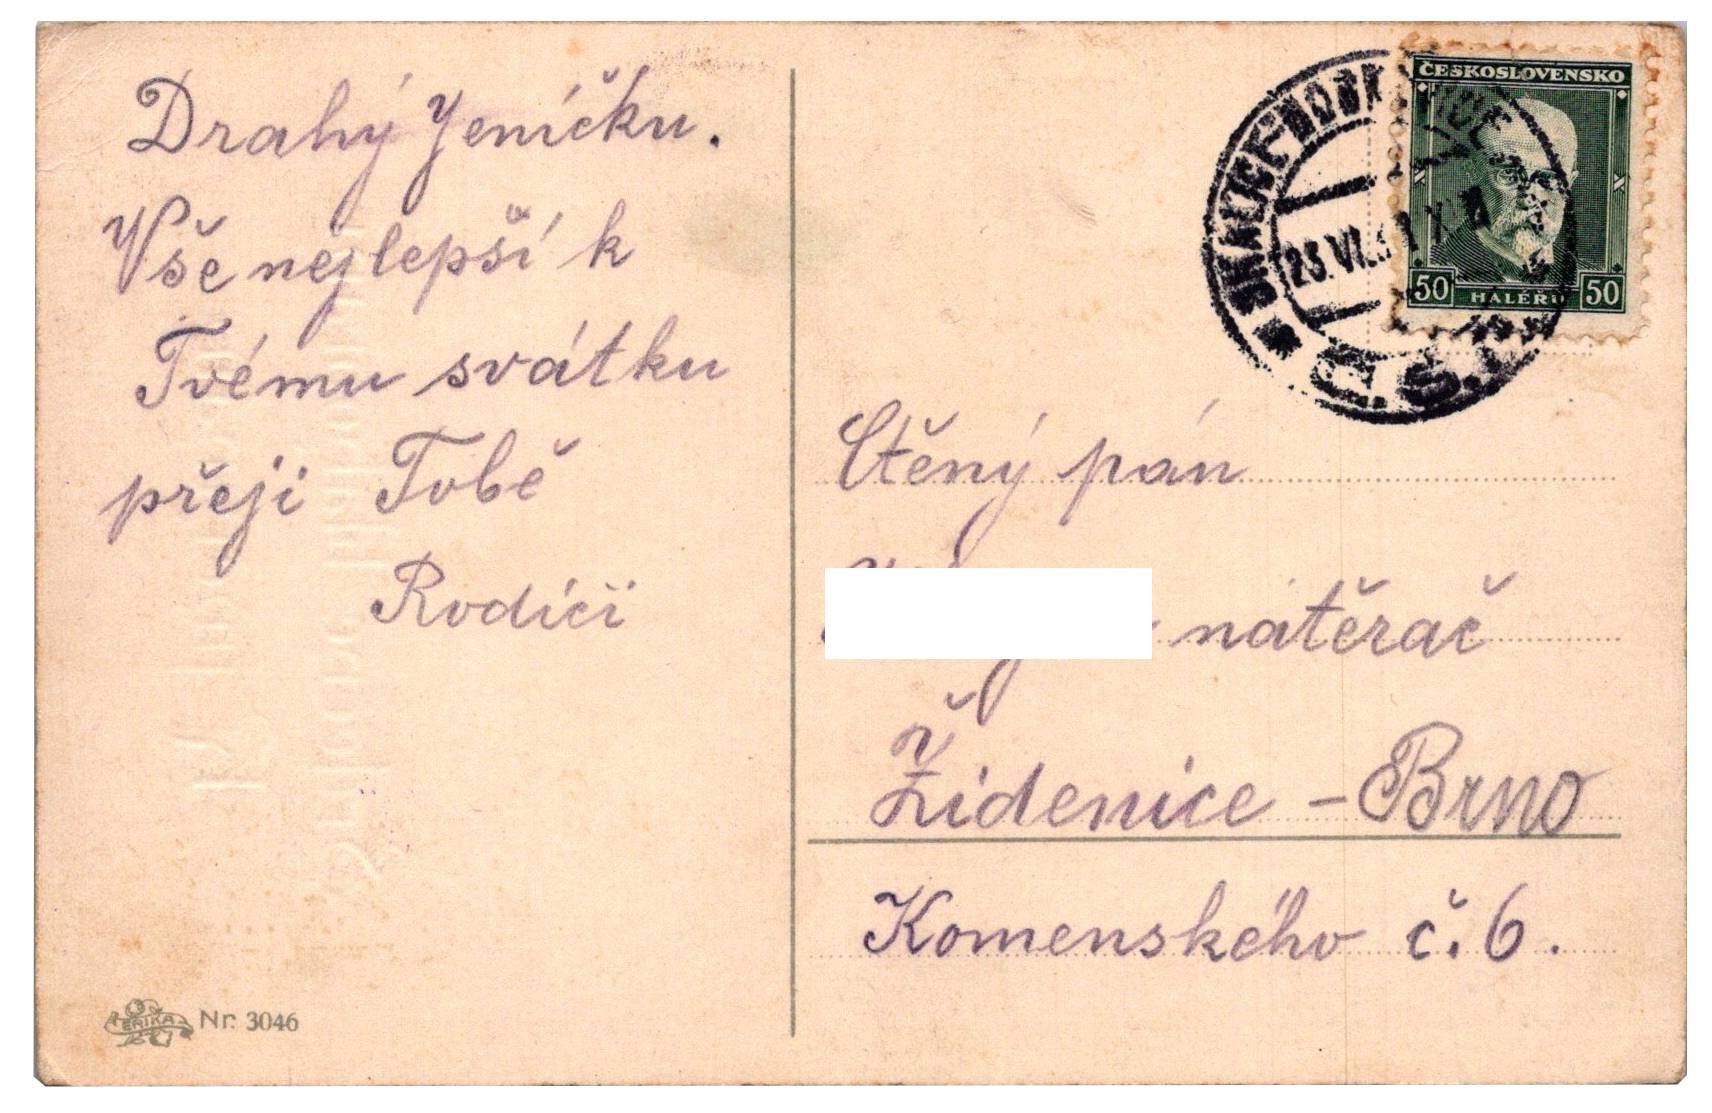 Drahý Jeníčku.
Vše nejlepší k
Tvému svátku
přeji Tobě
Rodičí
ERIKA Nr. 3046
ČESKOSLOVENSKO
50 HALÉŘŮ 50
SKALICE
23.VI.3
Č.S.
Ctěný pán
natěrač
Židenice - Brno
Komenského č. 6.